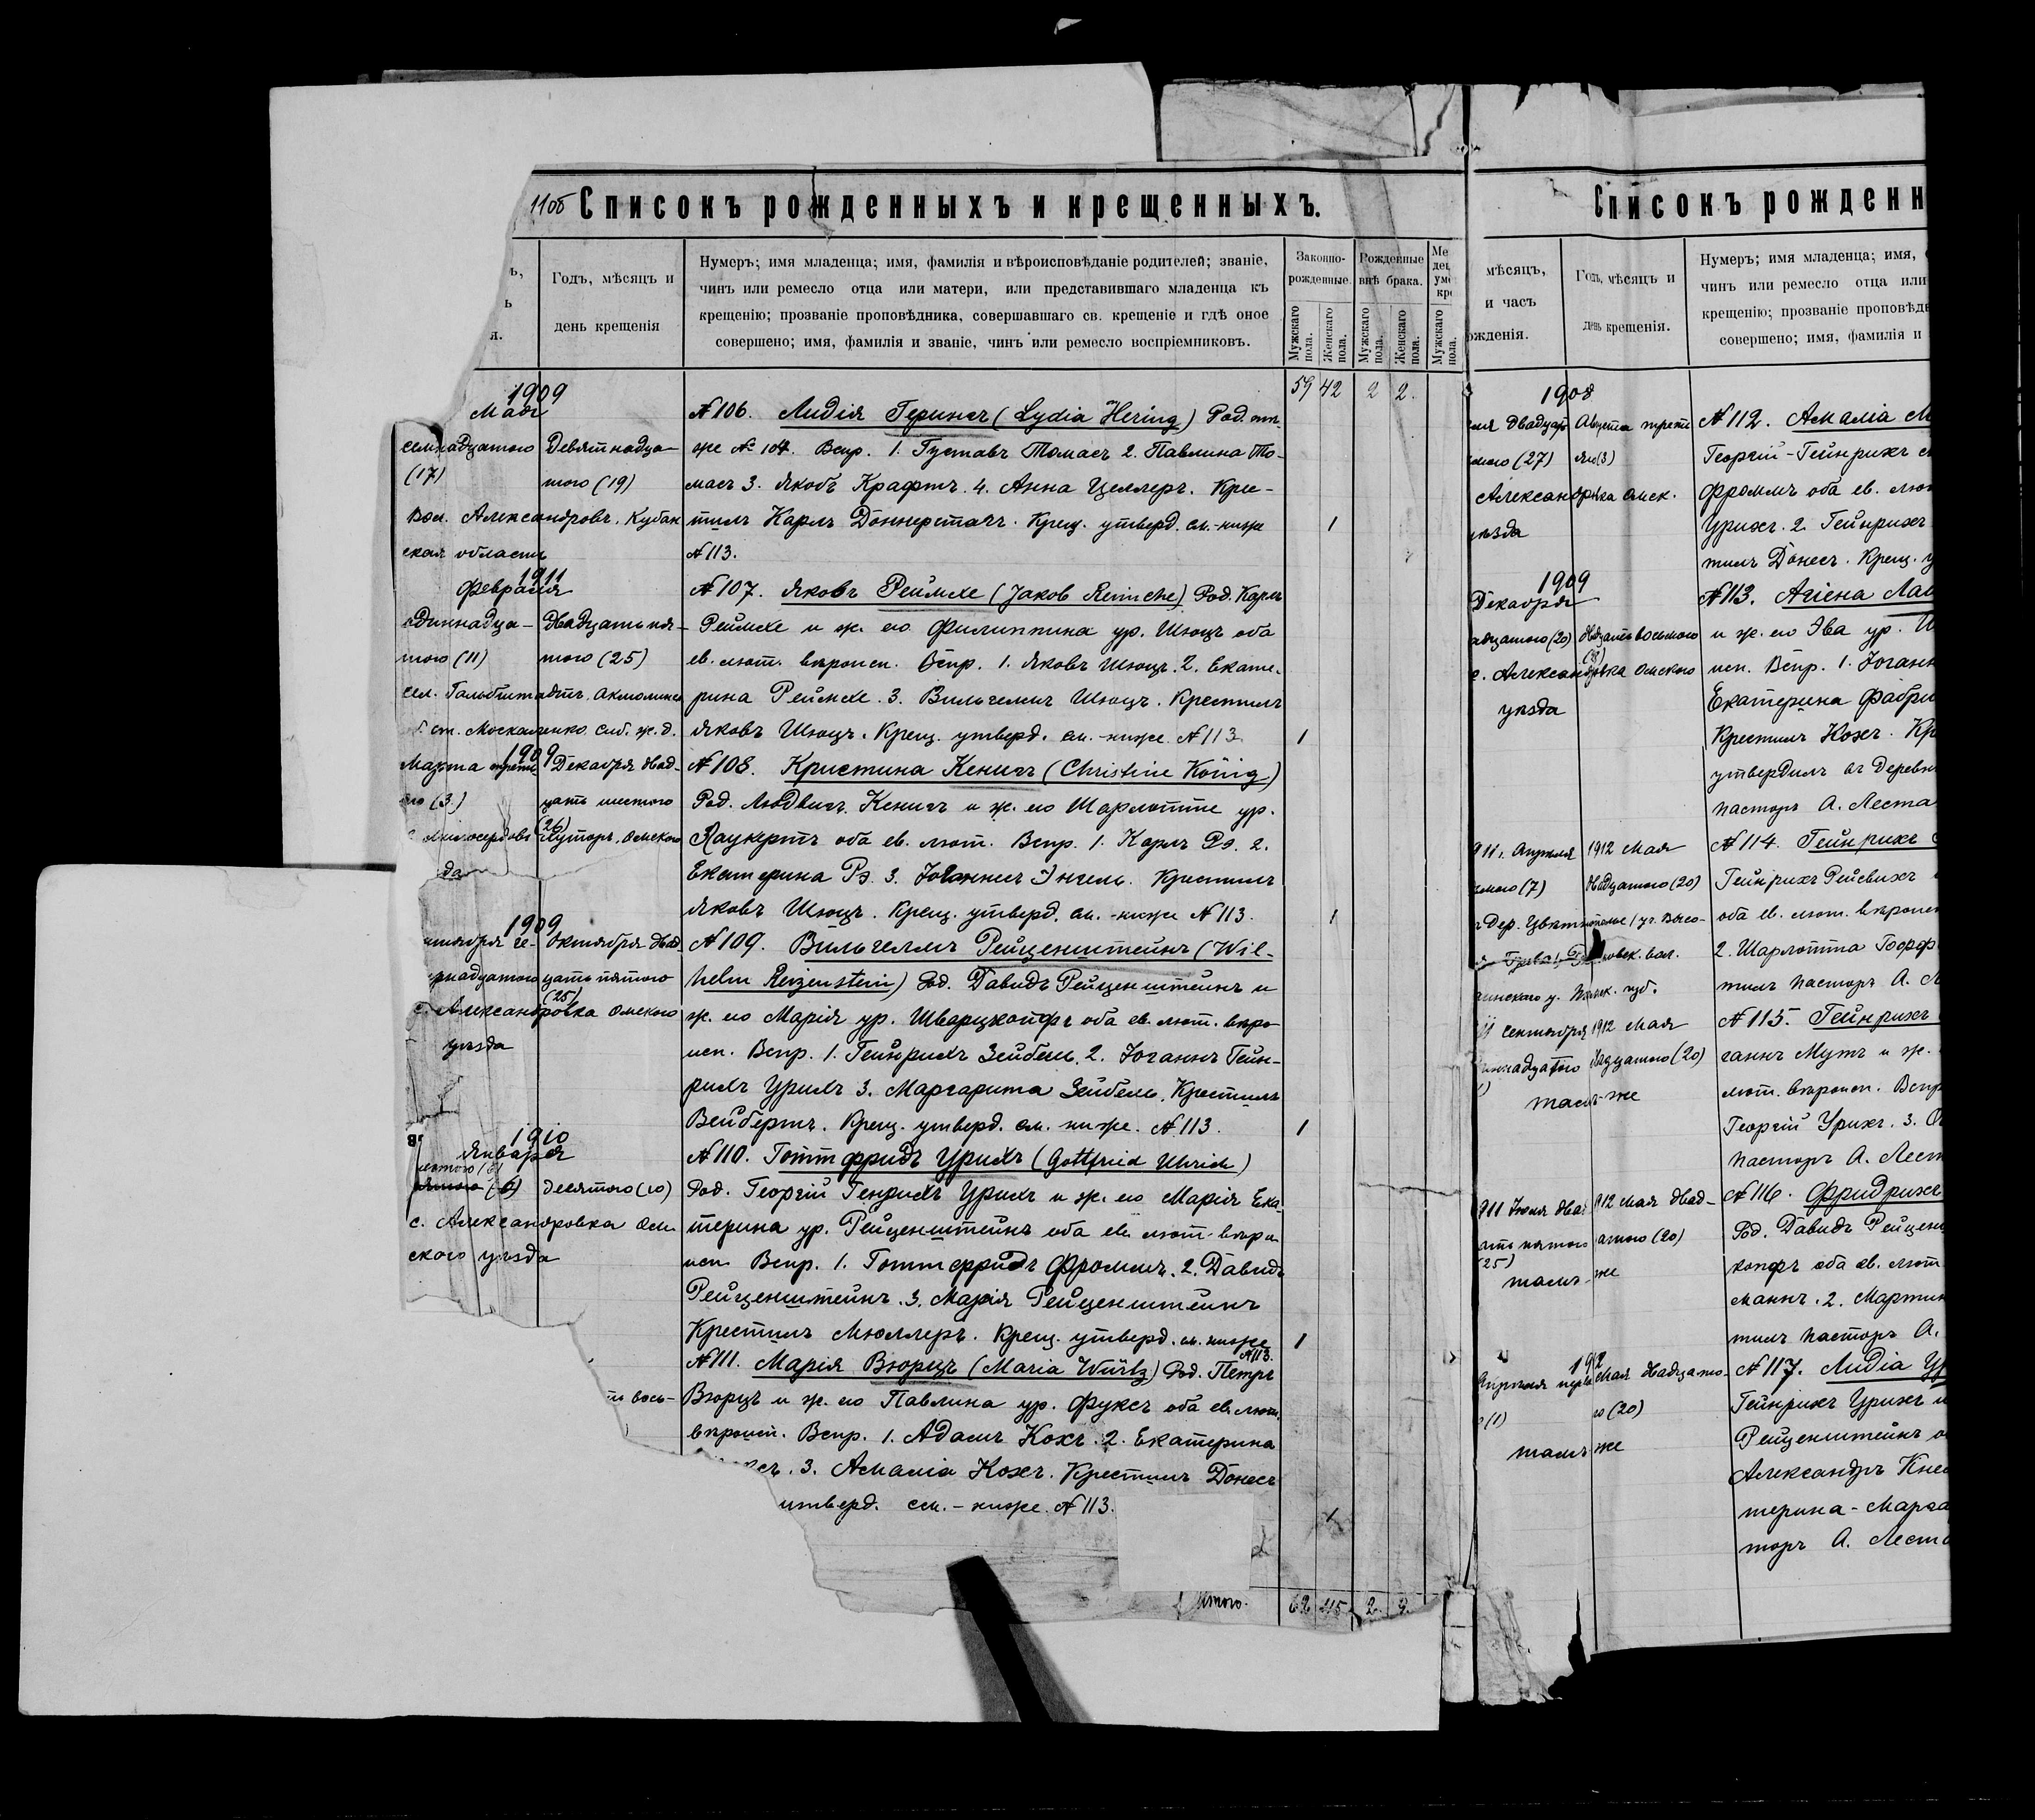 110б Списокъ рожденныхъ и крещенныхъ.
Годъ, мѣсяцъ и
день крещенія
Нумеръ; имя младенца; имя, фамилія и вѣроисповѣданіе родителей; званіе,
чинъ или ремесло отца или матери, или представившаго младенца къ
крещенію; прозваніе проповѣдника, совершавшаго св. крещеніе и гдѣ оное
совершено; имя, фамилія и званіе, чинъ или ремесло воспріемниковъ.
Законно-
рожденные.
Рожденные
внѣ брака.
Мужскаго пола.
Женскаго пола.
Мужскаго пола.
Женскаго пола.
Мужскаго пола.
59 42 2 2.
1909
Мая
семнадцатого
(17)
Девятнадца-
того (19)
Александровъ. Кубан
ская область
№ 106. Лидія Герингъ (Lydia Hering) Род. тѣ
же № 104. Вспр. 1. Густавъ Томасъ 2. Павлина То-
масъ 3. Якобъ Крафтъ. 4. Анна Целлеръ. Крес-
тилъ Карлъ Доннерстагъ. Крещ. утверд. см.-ниже
№ 113.
1
1911
Февраля
одиннадца-
того (11)
Двадцать пя-
того (25)
сел. Гальбштадтъ, Акмолинск
ст. Москаленко Сиб. ж. д.
№ 107. Яковъ Реймхе (Jakob Reimche) Род. Карлъ
Реймхе и ж. его Филиппина ур. Шюцъ оба
ев. лют. вѣроисп. Вспр. 1. Яковъ Шюцъ. 2. Екате-
рина Реймхе. 3. Вильгельмъ Шюцъ. Крестилъ
Яковъ Шюцъ. Крещ. утверд. см.-ниже № 113
1
1909
Марта треть
его (3.)
Декабря двад-
цать шестого
(26)
Милосердовъ Хуторъ. Омского
№ 108. Кристина Кенигъ (Christine König)
Род. Людвигъ Кенигъ и ж. его Шарлотте ур.
Лаукертъ оба ев. лют. Вспр. 1. Карлъ Рэ. 2.
Екатерина Рэ. 3. Іоганнесъ Энгель. Крестилъ
Яковъ Шюцъ. Крещ. утверд. см.-ниже № 113.
1
1909
Октября двад-
цать пятого
(25)
с. Александровка Омского
уѣзда
№ 109. Вильгельмъ Рейценштейнъ (Wil-
helm Reizenstein) Род. Давидъ Рейценштейнъ и
ж. его Марія ур. Шварцкопфъ оба ев. лют. вѣро
исп. Вспр. 1. Гейнрихъ Зейбель. 2. Іоганнъ Гейн-
рихъ Урихъ 3. Маргарита Зейбель. Крестилъ
Вейбертъ. Крещ. утверд. см. ниже. № 113.
1
1910
Января
десятого (10)
с. Александровка Ом
ского уѣзда
№ 110. Готтфридъ Урихъ (Gottfried Uhrich)
Род. Георгій Генрихъ Урихъ и ж. его Марія Ека-
терина ур. Рейценштейнъ оба ев. лют. вѣро
исп. Вспр. 1. Готтфридъ Фроммъ. 2. Давидъ
Рейценштейнъ. 3. Марія Рейценштейнъ
Крестилъ Мюллеръ. Крещ. утверд. см. ниже
№ 113.
1
№ 111. Марія Вюрцъ (Maria Würtz) Род. Петръ
Вюрцъ и ж. его Павлина ур. Фуксъ оба ев. лют.
вѣроисп. Вспр. 1. Адамъ Кохъ. 2. Екатерина
3. Амалія Кохъ. Крестилъ Донесъ
утверд. см.-ниже. № 113.
1
Итого. 62 45 2. 2.
Списокъ рожденн
мѣсяцъ,
и часъ
рожденія.
Годъ, мѣсяцъ и
день крещенія.
Нумеръ; имя младенца; имя,
чинъ или ремесло отца или
крещенію; прозваніе проповѣд
совершено; имя, фамилія и
1908
Августа треть
яго (3)
(27)
Александровка Омск.
уѣзда
№ 112. Амалія
Георгій-Гейнрихъ
Фроммъ оба ев. лют
Урихъ. 2. Гейнрихъ
тилъ Донесъ. Крещ. у
1909
Декабря
двадцатого (20)
двадцать восьмого
с. Александровка Омского
уѣзда
№ 113. Агіена
и ж. его Эва ур.
исп. Вспр. 1. Іоганн
Екатерина Фабри
Крестилъ Кохъ. Кр
утвердилъ въ деревн
пасторъ А. Леста
911. Апрѣля
(7)
1912 Мая
двадцатого (20)
№ 114. Гейнрихъ
Гейнрихъ Рейсвихъ
оба ев. лют. вѣроисп
2. Шарлотта
тилъ пасторъ А. Л
Сентября
1912 Мая
двадцатого (20)
тамъ-же
№ 115. Гейнрихъ
ганнъ Мутъ и ж.
лют. вѣроисп. Вспр
Георгій Урихъ. 3.
пасторъ А. Лест
911 Іюля двад
ать пятого
25)
912 Мая двад-
цатого (20)
тамъ-же
№ 116. Фридрихъ
Род. Давидъ Рейцен
копфъ оба ев. лют
манъ. 2. Мартин
тилъ пасторъ А.
1912
Апрѣля перва
го (1)
Мая двадцато-
го (20)
тамъ-же
№ 117. Лидіа Ур
Гейнрихъ Урихъ и
Рейценштейнъ о
Александръ
терина-Марга
торъ А. Леста